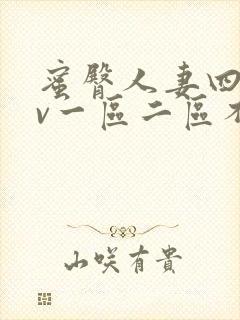 蜜臀人妻四
v一區二區不
山咲有貴